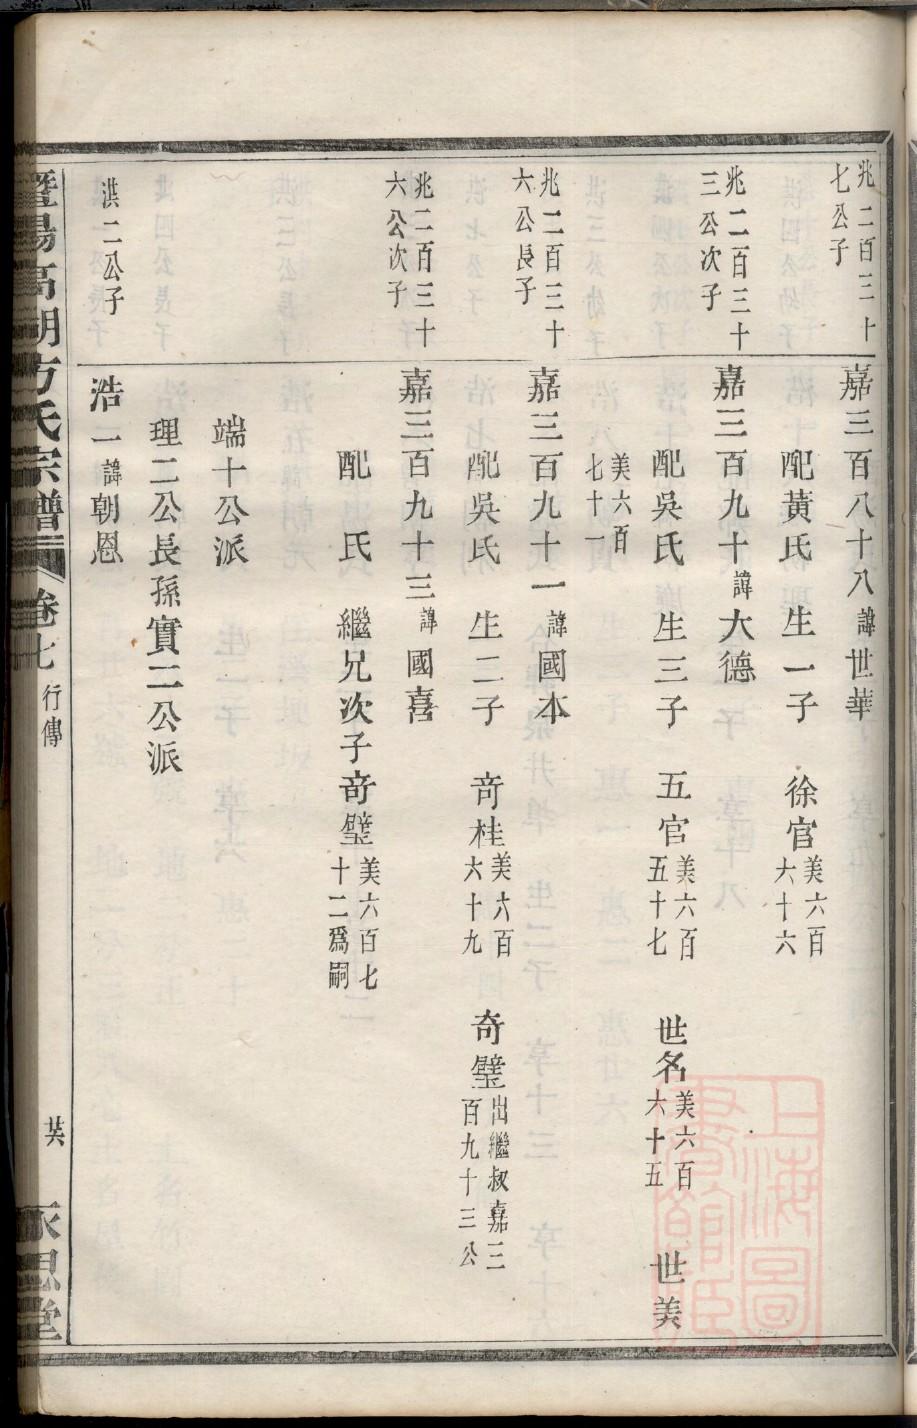 兆二百三十
七公子
嘉三百八十八諱世華
配黃氏 生一子 徐官美六百六十六
兆二百三十
三公次子
嘉三百九十諱大德
配吳氏 生三子 五官美六百五十七 世名美六百六十五 世美
美六百七十一
兆二百三十
六公長子
嘉三百九十一諱國本
配吳氏 生二子 奇桂美六百六十九 奇璧出繼叔嘉三百九十三公
兆二百三十
六公次子
嘉三百九十三諱國喜
配 氏 繼兄次子奇璧美六百七十二爲嗣
端十公派
理二公長孫實二公派
洪二公子
浩一諱朝恩
暨陽高湖方氏宗譜 卷七 行傳 永思堂
上海圖書館藏